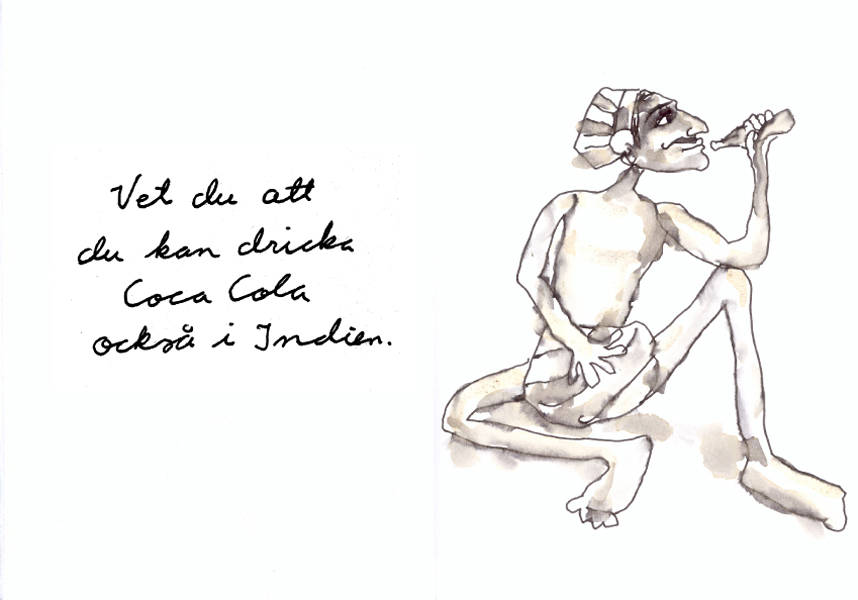 Vet du att
du kan dricka
Coca Cola
också i Indien.